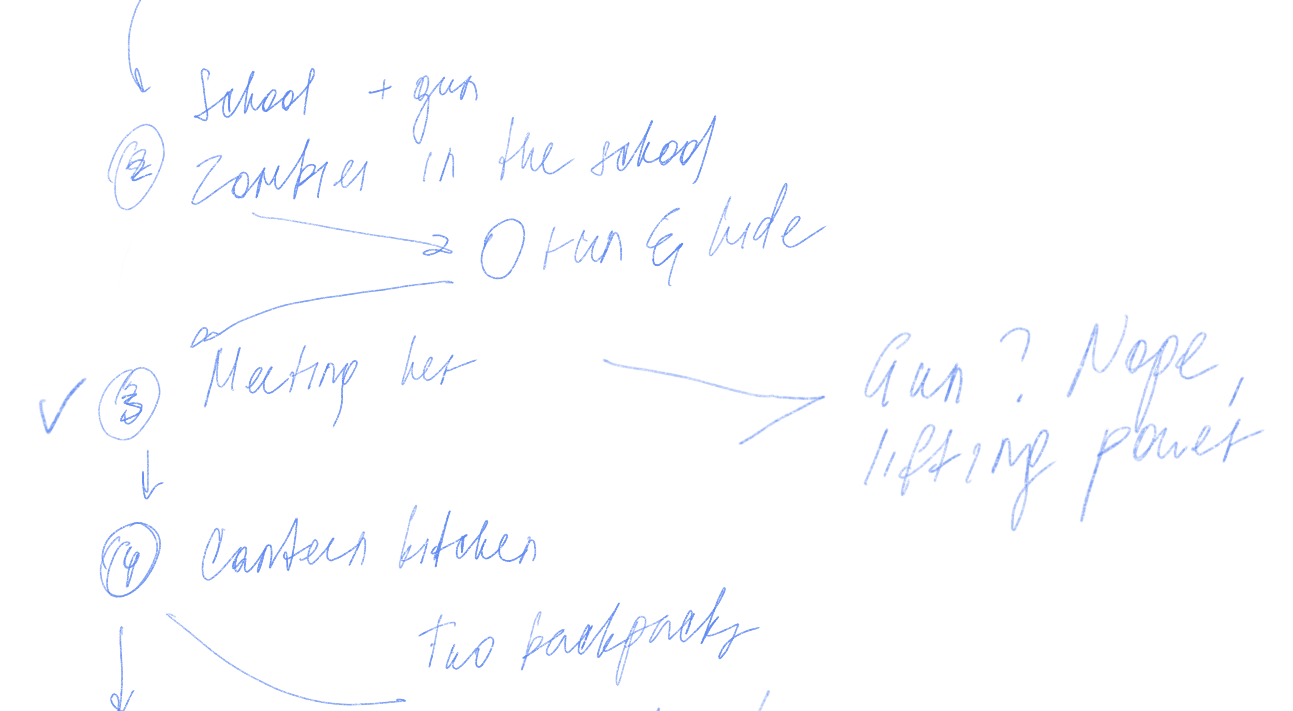 School + gun
2 Zombies in the school
O run & hide
3 Meeting her
Gun? Nope,
lifting power
4 Canteen kitchen
Two backpacks